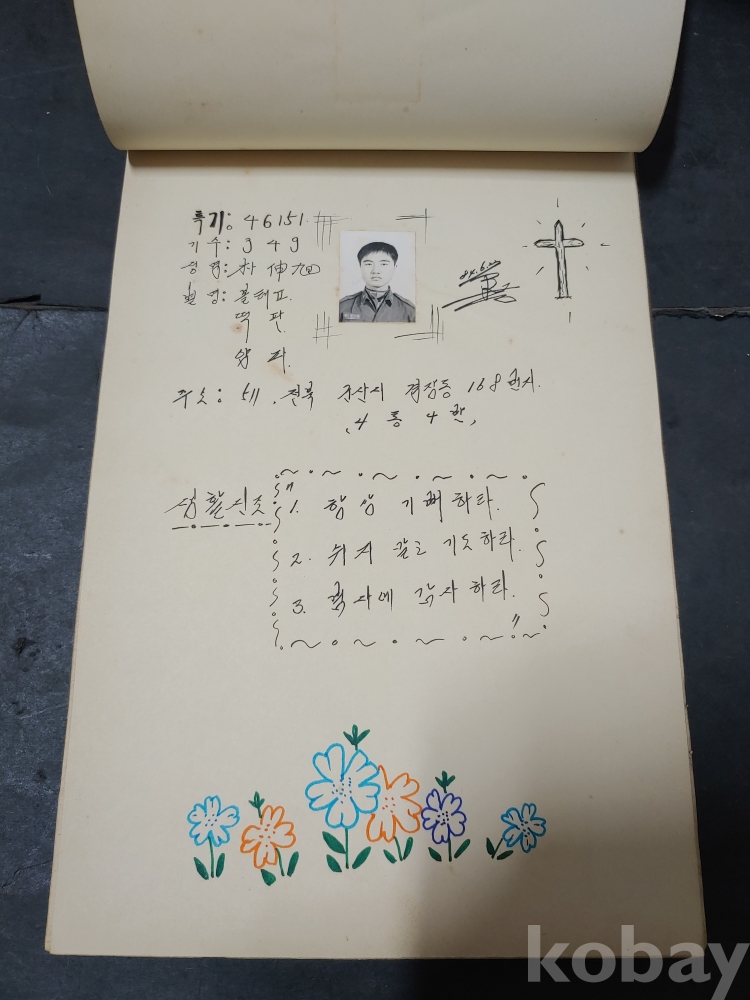 특기: 46151
기수: 349
성명: 朴伸旭
별명:
떡판
주소: 511. 전북 군산시 경장동 168번지.
(4통 4반)
생활신조
"1. 항상 기뻐하라.
2. 쉬지 말고 기도하라.
3. 범사에 감사하라."
kobay